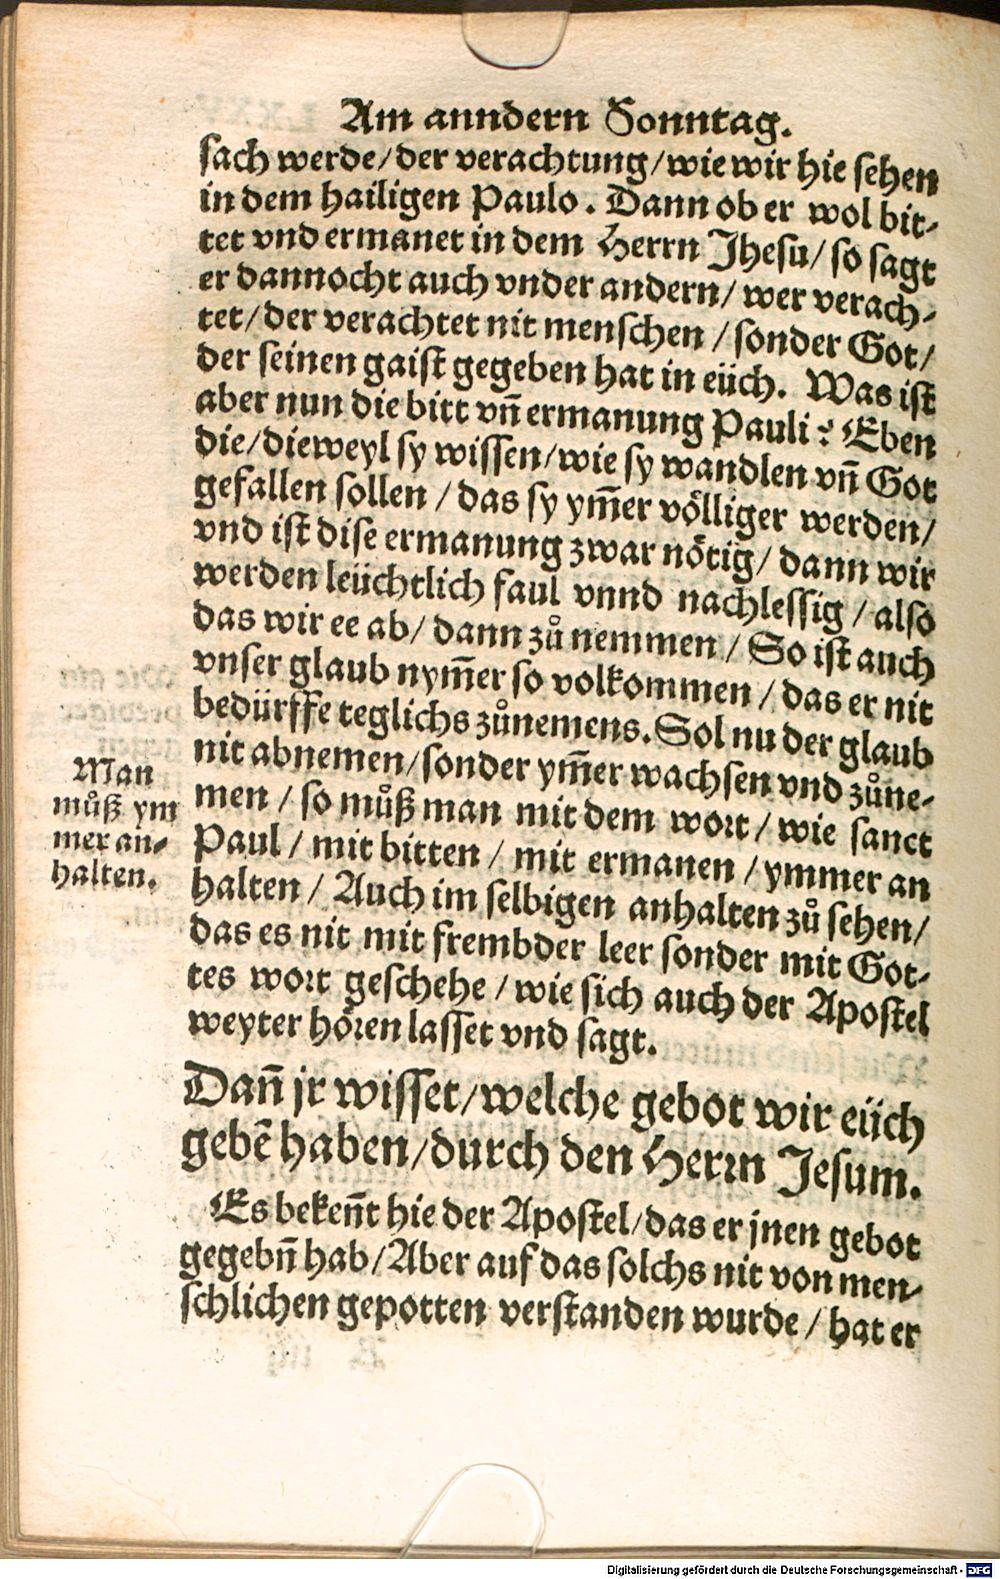 Am anndern Sonntag.
sach werde/der verachtung/wie wir hie sehen
in dem hailigen Paulo. Dann ob er wol bit⸗
tet vnd ermanet in dem Herrn Jhesu/ so sagt
er dannocht auch vnder andern/ wer verach⸗
tet/ der verachtet nit menschen / sonder Got/
der seinen gaist gegeben hat in eüch. Was ist
aber nun die bitt vn̄ ermanung Pauli? Eben
die/dieweyl sy wissen/wie sy wandlen vn̄ Got
gefallen sollen / das sy ym̄er völliger werden/
vnd ist dise ermanung zwar nötig/ dann wir
werden leüchtlich faul vnnd nachlessig / also
das wir ee ab/ dann zů nemmen / So ist auch
vnser glaub nym̄er so volkommen / das er nit
bedürffe teglichs zůnemens. Sol nu der glaub
nit abnemen/sonder ym̄er wachsen vnd zůne⸗
Man
můß ym
mer an⸗
halten.
men / so můß man mit dem wort / wie sanct
Paul / mit bitten / mit ermanen / ymmer an
halten / Auch im selbigen anhalten zů sehen/
das es nit mit frembder leer sonder mit Got⸗
tes wort geschehe / wie sich auch der Apostel
weyter hören lasset vnd sagt.
Dan̄ jr wisset/welche gebot wir eüch
gebē haben/durch den Herrn Jesum.
Es beken̄t hie der Apostel/das er jnen gebot
gegebn̄ hab/Aber auf das solchs nit von men⸗
schlichen gepotten verstanden wurde / hat er
Digitalisierung gefördert durch die Deutsche Forschungsgemeinschaft - DFG